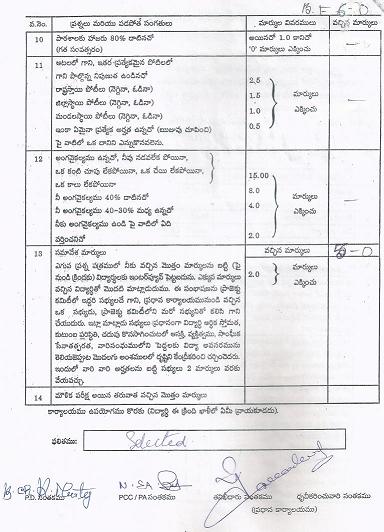 B.F 5-0
వ.నెం. ప్రశ్నలు మరియు పదపోత సంగతులు మార్కుల వివరములు వచ్చిన మార్కులు
10 పాఠశాలకు హాజరు 80% దాటినచో అయినచో 1.0 కానిచో
(గత సంవత్సరం) '0' మార్కులు ఎక్కించు
11 ఆటలలో గాని, ఇతర ప్రత్యేకమైన పోటిలలో
గాని పాల్గొన్న నిపుణుత ఉండినచో 2.5
రాష్ట్రస్థాయి పోటీలు (నెగ్గినా, ఓడినా) 1.5 మార్కులు
జిల్లాస్థాయి పోటీలు (నెగ్గినా, ఓడినా) 1.0 ఎక్కించు
మండలస్థాయి పోటీలు (నెగ్గినా, ఓడినా) 0.5
ఇంకా ఏమైనా ప్రత్యేక అర్హత ఉన్నచో (ఋజువు చూపించి)
పై వాటిలో ఒక దానిని ఎన్నుకొనవలెను.
12 అంగవైకల్యము ఉన్నచో, నీవు నడవలేక పోయినా,
ఒక కంటి చూపు లేకపోయినా, ఒక చేయి లేకపోయినా, 15.00
ఒక కాలు లేకపోయినా 8.0 మార్కులు
నీ అంగవైకల్యము 40% దాటినచో 4.0 ఎక్కించు
నీ అంగవైకల్యము 40-30% మధ్య ఉన్నచో 2.0
నీకు అంగవైకల్యము ఉండి పై వాటిలో ఏది
వర్తించనిచో
13 సమావేశ మార్కులు వచ్చిన మార్కులు 5-0
ఎగువ ప్రశ్న పత్రములో నీకు వచ్చిన మొత్తం మార్కులను బట్టి (పై
నుంచి క్రిందకు) విద్యార్థులకు ఇంటర్వ్యూన్ పెట్టబడును. ఎక్కువ మార్కులు 2.0 మార్కులు
వచ్చిన విద్యార్థితో మొదట మాట్లాడుదుము. ఈ సంభాషణను ప్రాజెక్టు ఎక్కించు
కమిటీలో ఇద్దరి సభ్యులచే గాని, ప్రధాన కార్యాలయమునుండి వచ్చిన
ఒక సభ్యుడు, ప్రాజెక్టు కమిటీలోని మరో సభ్యునితో కలిసి గాని
చేయుదురు. ఇట్లా మాట్లాడు సభ్యులు ప్రధానంగా విద్యార్థి ఆర్థిక స్తోమత,
కుటుంబ పరిస్థితి, చదువు కొనసాగించుటలో ఆసక్తి, వ్యక్తిత్వము, సాంఘిక
సేవాతత్పరత, వారినంఘములోని పెద్దలకు విద్యా అవసరమును
తెలియజెప్పుట మొదలగు అంశములలో దృష్టిని కేంద్రీకరించి చర్చించెదరు.
ఇందులో వారి వారి అర్హతలను బట్టి సభ్యులు 2 మార్కులు వరకు
వేయవచ్చు.
14 మౌలిక పరీక్ష అయిన తరువాత వచ్చిన మొత్తం మార్కులు
కార్యాలయము ఉపయోగము కొరకు (విద్యార్థి ఈ క్రింది ఖాళీలో ఏమీ వ్రాయకూడదు).
ఫలితము: Selected
P.D. సంతకము PCC / PA సంతకము తనిఖీదారు సంతకము ధృవీకరించువారి సంతకము
(ప్రధాన కార్యాలయం)